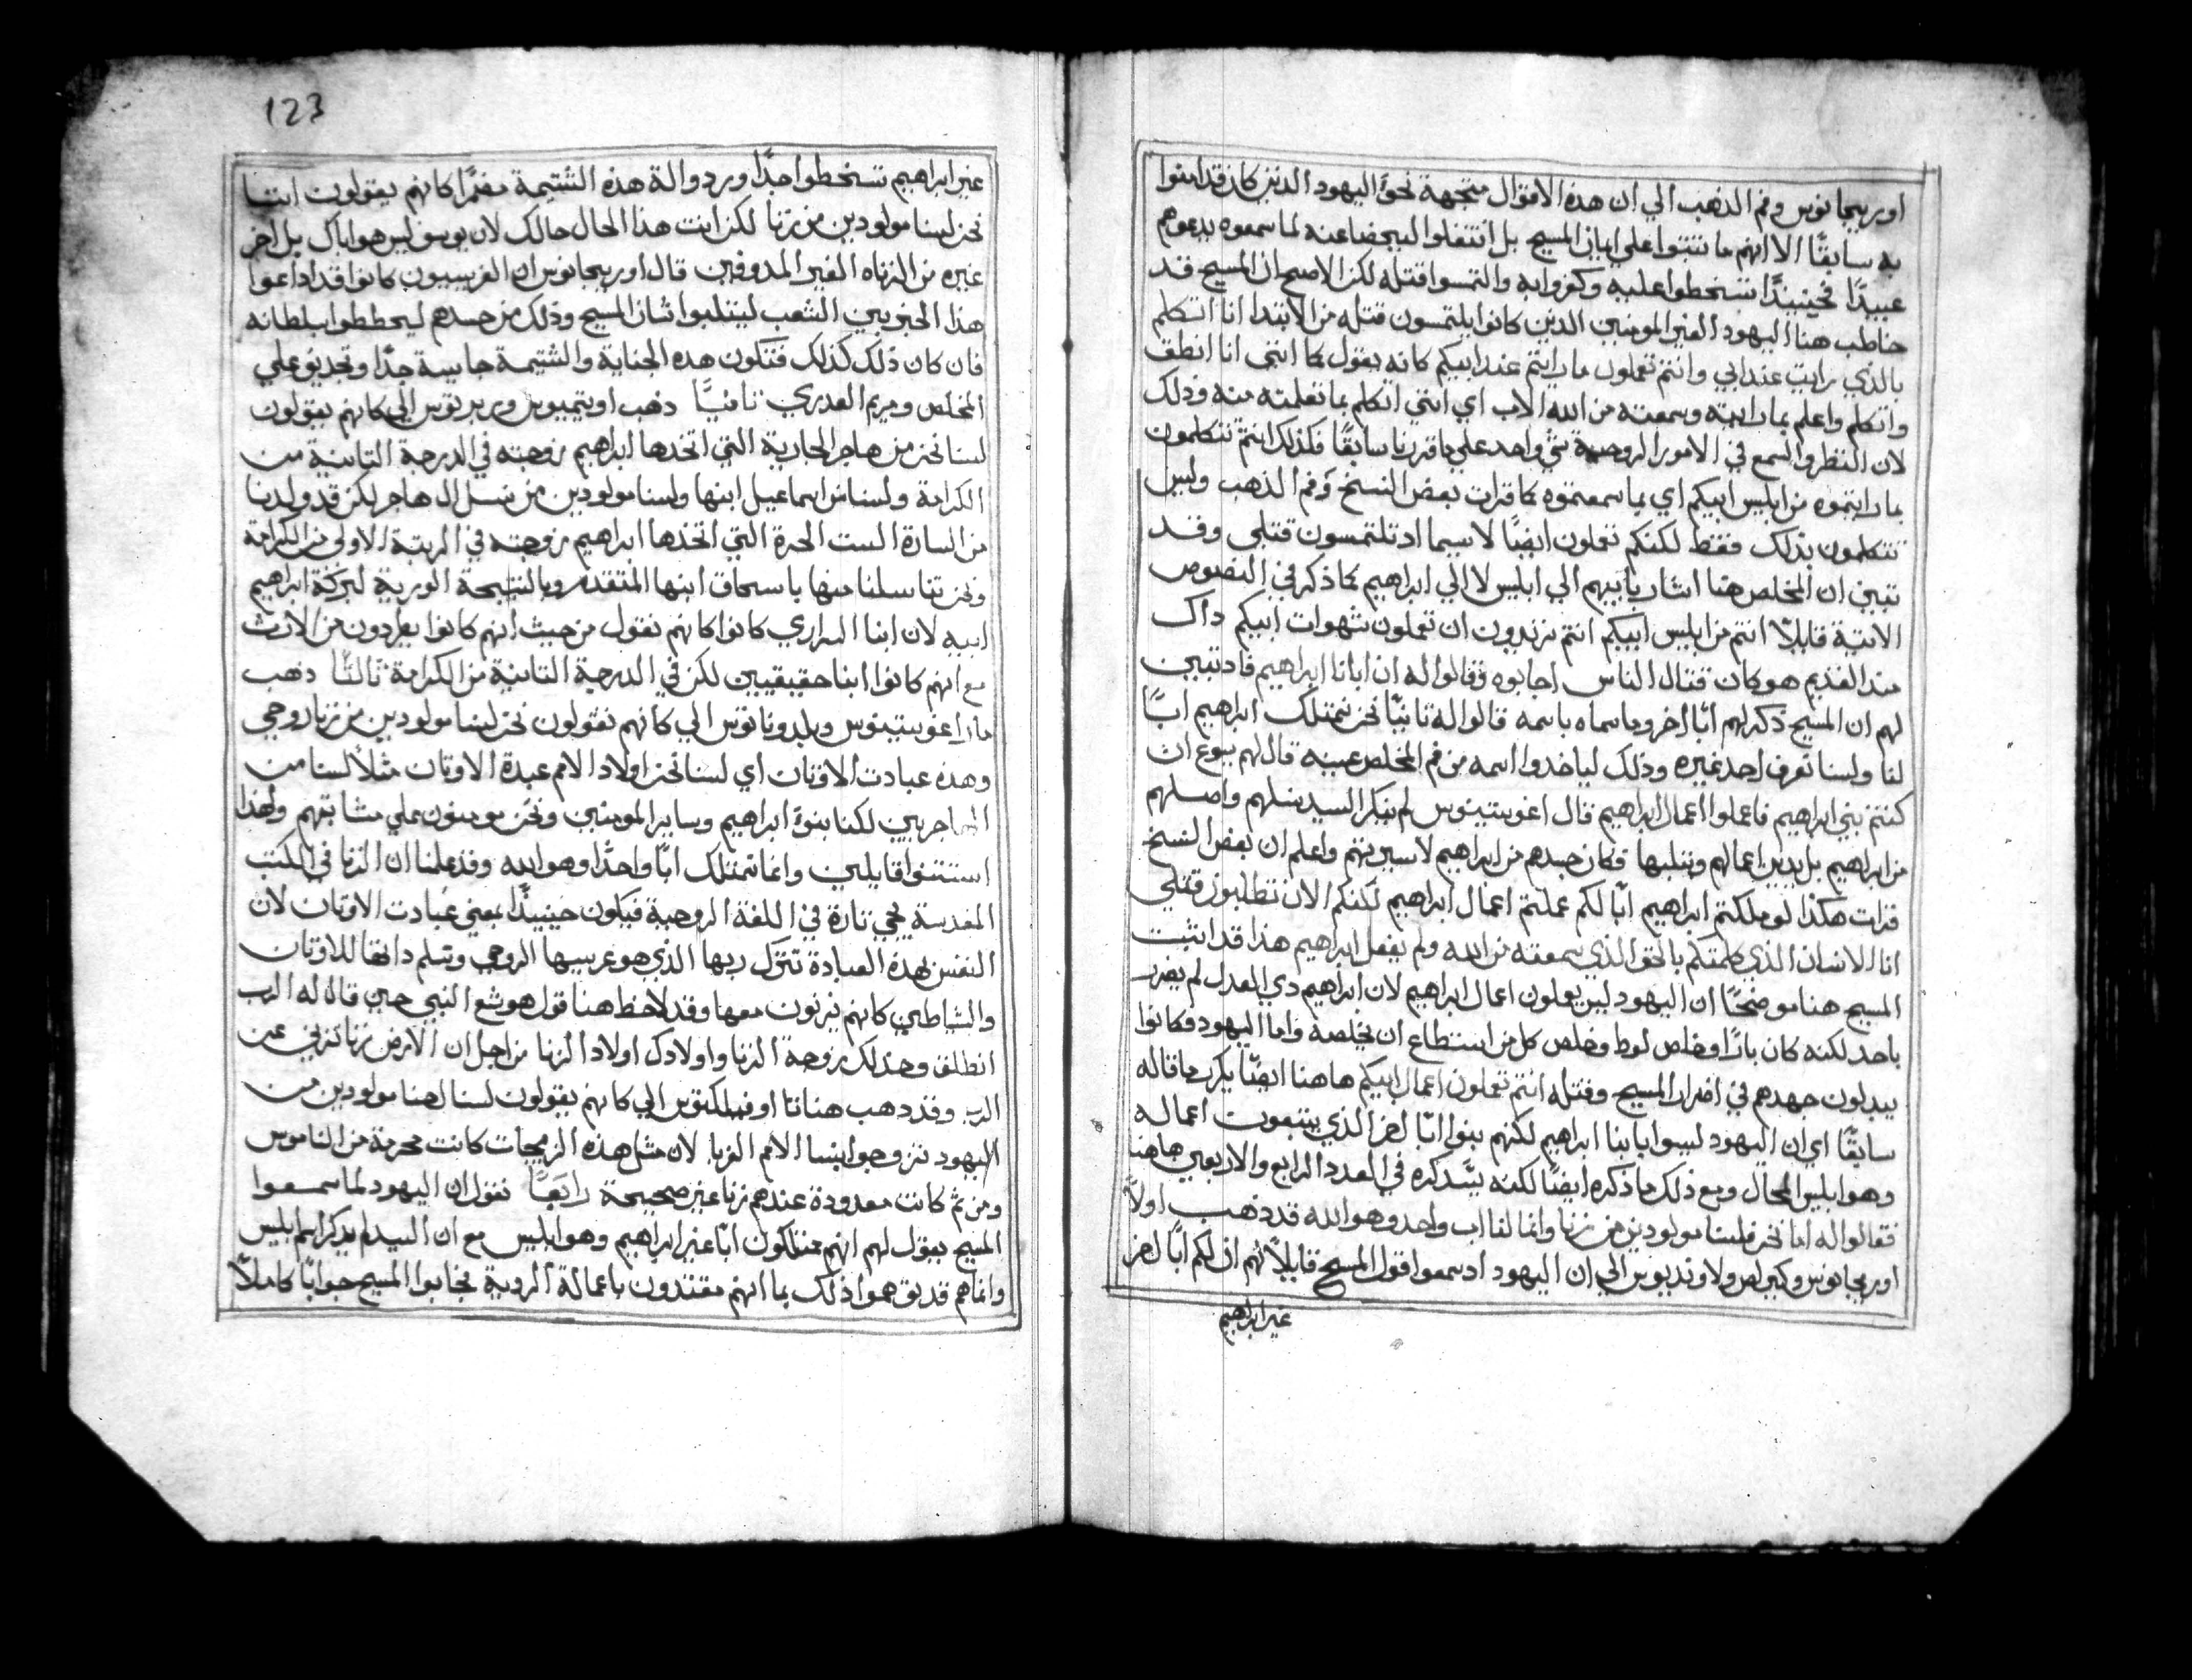 اوريجانوس وفم الذهب الي ان هذه الاقوال متجهة نحو اليهود الذين كان قد امنوا
به سابقًا الا انهم ما تثبتوا علي ايمان المسيح بل انتقلوا لبيحضاعنه لما سمعوه يدعوهم
عبيدًا فحينيذًا تسخطوا عليه وكفروا به والتمسوا قتله لكن الاصح ان المسيح قد
خاطب هنا اليهود الغير المومنين الذين كانوا يلتمسون قتله من الابتدا انا اتكلم
بالذي رايت عند ابي وانتم تعملون ما رايتم عند ابيكم كانه يقول كما انني انا انطق
واتكلم واعلم بما رايته وسمعته من الله الاب اي انني اتكلم بما تعلمته منه وذلك
لان النظر والسمع في الامور الروحية شي واحد علي ما قررنا سابقًا فكذلك انتم تتكلمون
بما رايتموه من ابليس ابيكم اي بما سمعتموه كما قرات بعض النسخ وفم الذهب وليس
تتكلمون بذلك فقط لكنكم تعملون ايضًا لا سيما اد تلتمسون قتلي وقد
تبين ان المخلص هنا اشار بابيهم الي ابليس لا الي ابراهيم كما ذكر في النصوص
الاتية قايلاً انتم من ابليس ابيكم انتم تريدون ان تعملون شهوات ابيكم داك
مند القديم هو كان قتال الناس اجابوه وقالوا له ان ابانا ابراهيم فاد تبين
لهم ان المسيح ذكر لهم ابًا اخر وما سماه باسمه قالوا له تانيًا نحن نمتلك ابراهيم ابًا
لنا ولسنا نعرف احد غيره وذلك لياخدوا اسمه من فم المخلص عينه قال لهم يسوع ان
كنتم بني ابراهيم فاعملوا اعمال ابراهيم قال اغوستينوس لم ينكر السيد نسلهم واصلهم
من ابراهيم بل يدين اعمالهم وبتلبها فكان جسدهم من ابراهيم لا سيرتهم واعلم ان بعض النسخ
قرات هكذا لو ملكتم ابراهيم ابًا لكم عملتم اعمال ابراهيم لكنكم الان تطلبون قتلي
انا الانسان الذي كلمتكم بالحق الذي سمعته من الله ولم يفعل ابراهيم هذا قد اتبت
المسيح هنا موضحًا ان اليهود ليس يعملون اعمال ابراهيم لان ابراهيم دي العدل لم يضرر
باحد لكنه كان بارًا وخلص لوط وخلص كل من استطاع ان يخلصه واما اليهود فكانوا
يبدلون جهدهم في اضرار المسيح وقتله انتم تعملون اعمال ابيكم هاهنا ايضًا يكرر ما قاله
سابقًا اي ان اليهود ليسوا بابنا ابراهيم لكنهم بنوا ابًا اخر الذي يتبعون اعماله
وهو ابليس المحال ومع ذلك ما ذكره ايضًا لكنه سيدكره في العدد الرابع والاربعين هاهنا
فقالوا له اما نحن فلسنا مولودين من زنا وانما لنا اب واحد وهو الله قد ذهب اولاً
اوريجانوس وكيرلص ولاونديوس الي ان اليهود اد سمعوا قول المسيح قايلاً لهم ان لكم ابًا اخر
غير ابراهيم
123
غير ابراهيم تسخطوا جدًا وردوا له هذه الشتيمة مغمًا كانهم يقولون اننا
نحن لسنا مولودين من زنا لكن انت هذا الحال حالك لان يوسف ليس هو اباك بل اخر
غيره من الزناه الغير المدوفين قال اوريجانوس ان الفريسيون كانوا قد اداعوا
هذا الخبر بين الشعب ليتلبوا شان المسيح وذلك من حسدهم ليحططوا بلطانه
فان كان ذلك كذلك فتكون هذه الجناية والشتيمة جاسية جدًا وتجديف علي
المخلص ومريم العدري تانيًا دهب اوتيميوس وبريتوس الي كانهم يقولون
لسنا نحن من هاجر الجارية التي اتخدها ابراهيم زوجته في الدرجة التانية من
الكرامة ولسنا من اسماعيل ابنها ولسنا مولودين من نسل ال هاجر لكن قد ولدنا
من السارة الست الحرة التي اتخدها ابراهيم زوجته في الرتبة الاولي من الكرامة
ونحن تناسلنا منها باسحاق ابنها المتقدم وبالنتيجة الورية لبركة ابراهيم
ابيه لان ابنا السراري كانوا كانهم نغول من حيث انهم كانوا يطردون من الارث
مع انهم كانوا ابنا حقيقيين لكن في الدرجة التانية من الكرامة تالتًا دهب
مار اغوستينوس ويلدونانوس الي كانهم يقولون نحن لسنا مولودين من زنا روحي
وهذه عبادت الاوتان اي لسنا نحن اولاد الامم عبدة الاوتان مثلاً لسنا من
الهاجريين لكنا بنوا ابراهيم وساير المومنين ونحن مومنون علي مشابتهم ولهذا
استتنوا قايلين وانما نمتلك ابًا واحدًا وهو الله وقد علمنا ان الزنا في الكتب
المقدسة يجي تارة في اللغة الروحية فيكون حينيدًا بمعني عبادت الاوتان لان
النفس بهذه العبادة تترك ربها الذي هو عريسها الروحي وتسلم داتها للاوتان
والشياطين كانهم يزنون معها وقد لاحظ هنا قول هوشع النبي حين قال له الرب
انطلق وخد لك زوجة الزنا واولادك اولاد الزنا من اجل ان الارض زنا تزني عن
الرب وقد دهب هنا تاا الي كانهم يقولون لسنا لهنا مولودين من
اليهود تزوجوا بنسا الامم الغربا لان مثل هذه الزيجات كانت محرمة من الناموس
ومن ثم كانت معدودة عندهم زنا غير صحيحة رابعًا نقول ان اليهود لما سمعوا
المسيح يقول لهم انهم يمتلكون ابًا غير ابراهيم وهو ابليس مع ان السيد لم يدكر اسم ابليس
وانما هم قد يقهموا ذلك بما انهم مقتدون باعماله الردية فجابوا المسيح جوابًا كاملاً